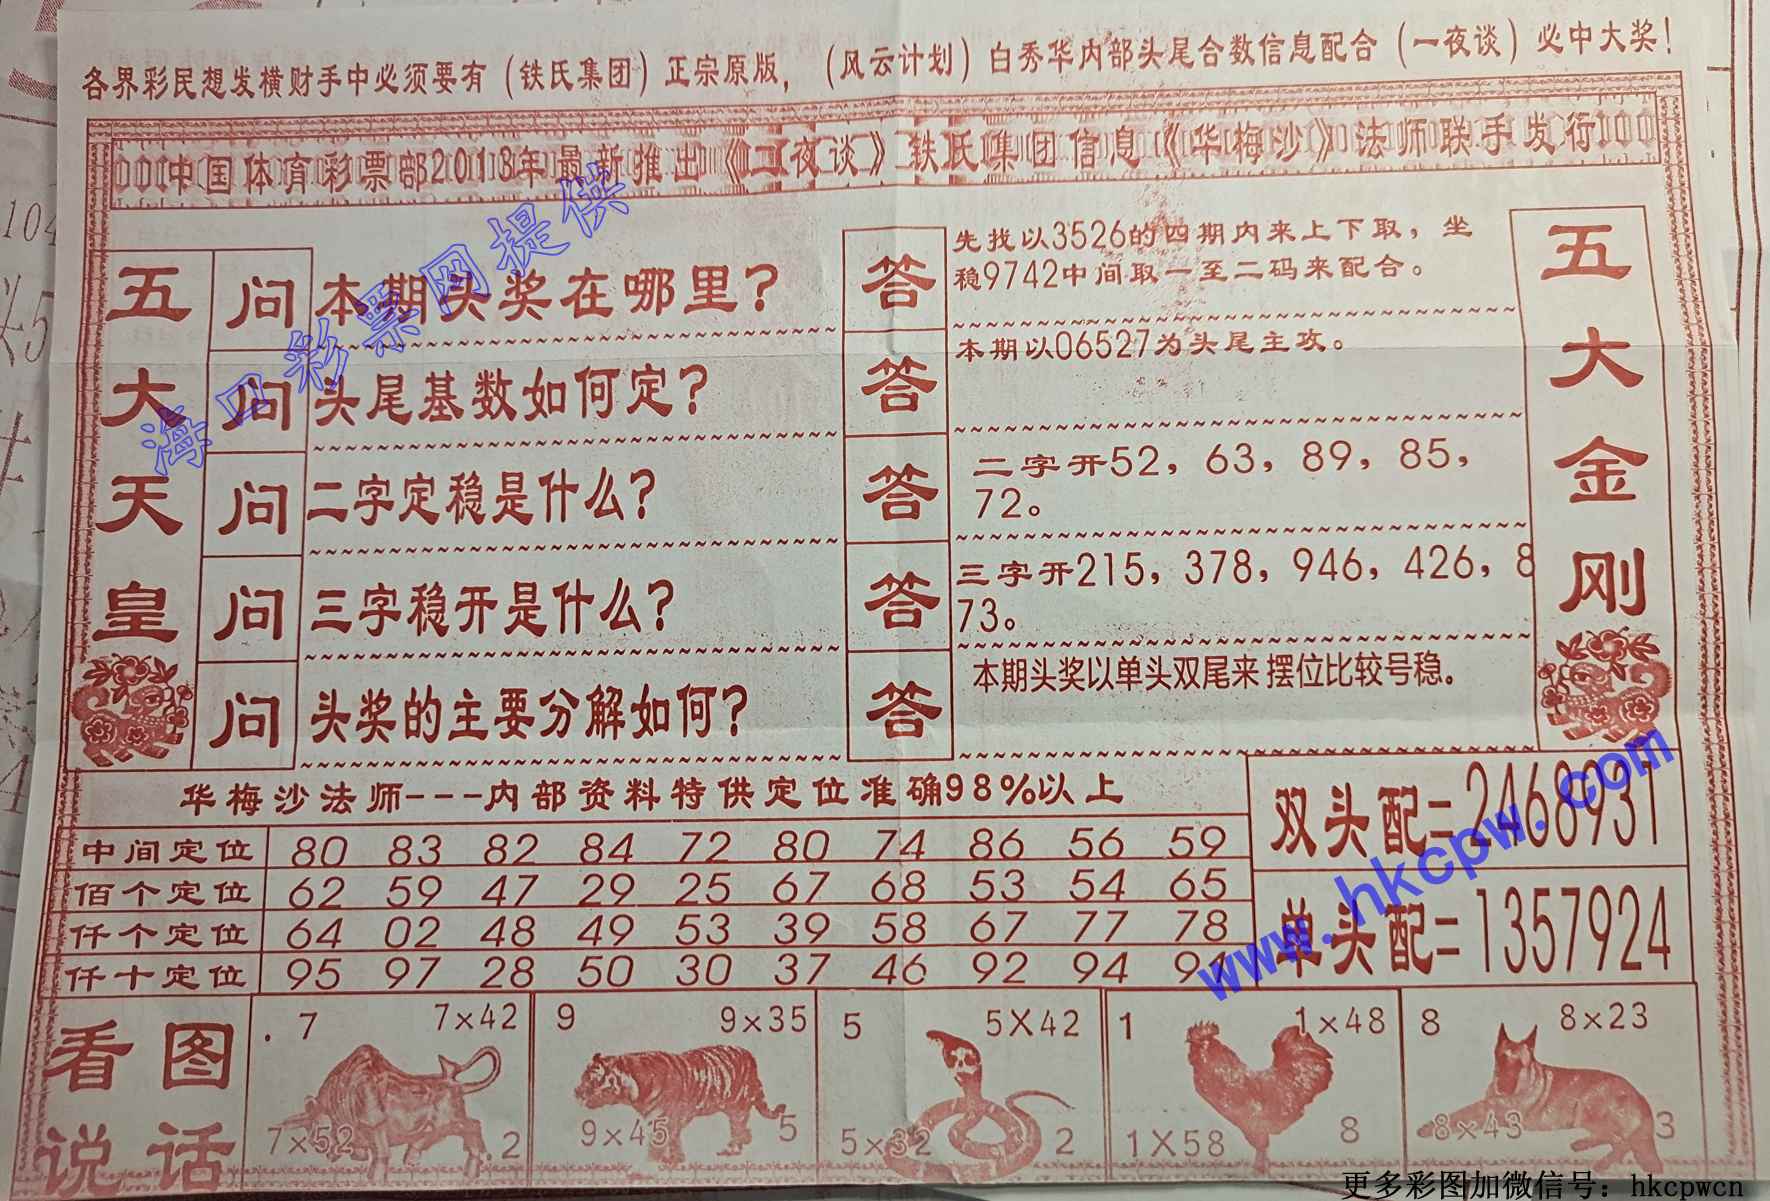 各界彩民想发横财手中必须要有（铁氏集团）正宗原版，（风云计划）白秀华内部头尾合数信息配合（一夜谈）必中大奖！
中国体育彩票部2018年最新推出《二夜谈》铁氏集团信息《华梅沙》法师联手发行
五大天皇
问 本期头奖在哪里？
答 先找以3526的四期内来上下取，坐
稳9742中间取一至二码来配合。
问 头尾基数如何定？
答 本期以06527为头尾主攻。
问 二字定稳是什么？
答 二字开52，63，89，85，
72。
问 三字稳开是什么？
答 三字开215，378，946，426，8
73。
问 头奖的主要分解如何？
答 本期头奖以单头双尾来 摆位比较号稳。
五大金刚
华梅沙法师---内部资料特供定位准确98%以上
中间定位 80 83 82 84 72 80 74 86 56 59
佰个定位 62 59 47 29 25 67 68 53 54 65
仟个定位 64 02 48 49 53 39 58 67 77 78
仟十定位 95 97 28 50 30 37 46 92 94 91
双头配=2468931
单头配=1357924
看图
说话
7 7×42
7×52 2
9 9×35
9×45 5
5 5X42
5×32 2
1 1×48
1X58 8
8 8×23
8×43 3
海口彩票网提供
www.hkcpw.com
更多彩图加微信号：hkcpwcn
104